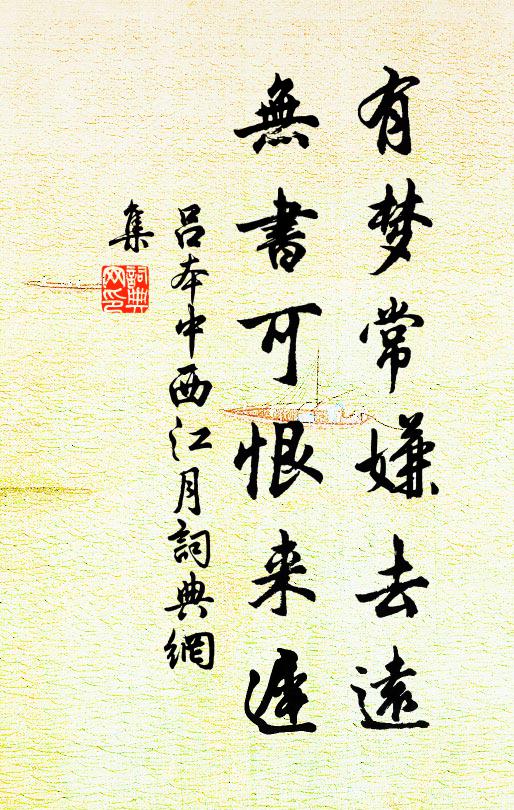 有梦常嫌去遠
無書可恨来遲
吕本中西江月詞典網
集
詞典網印